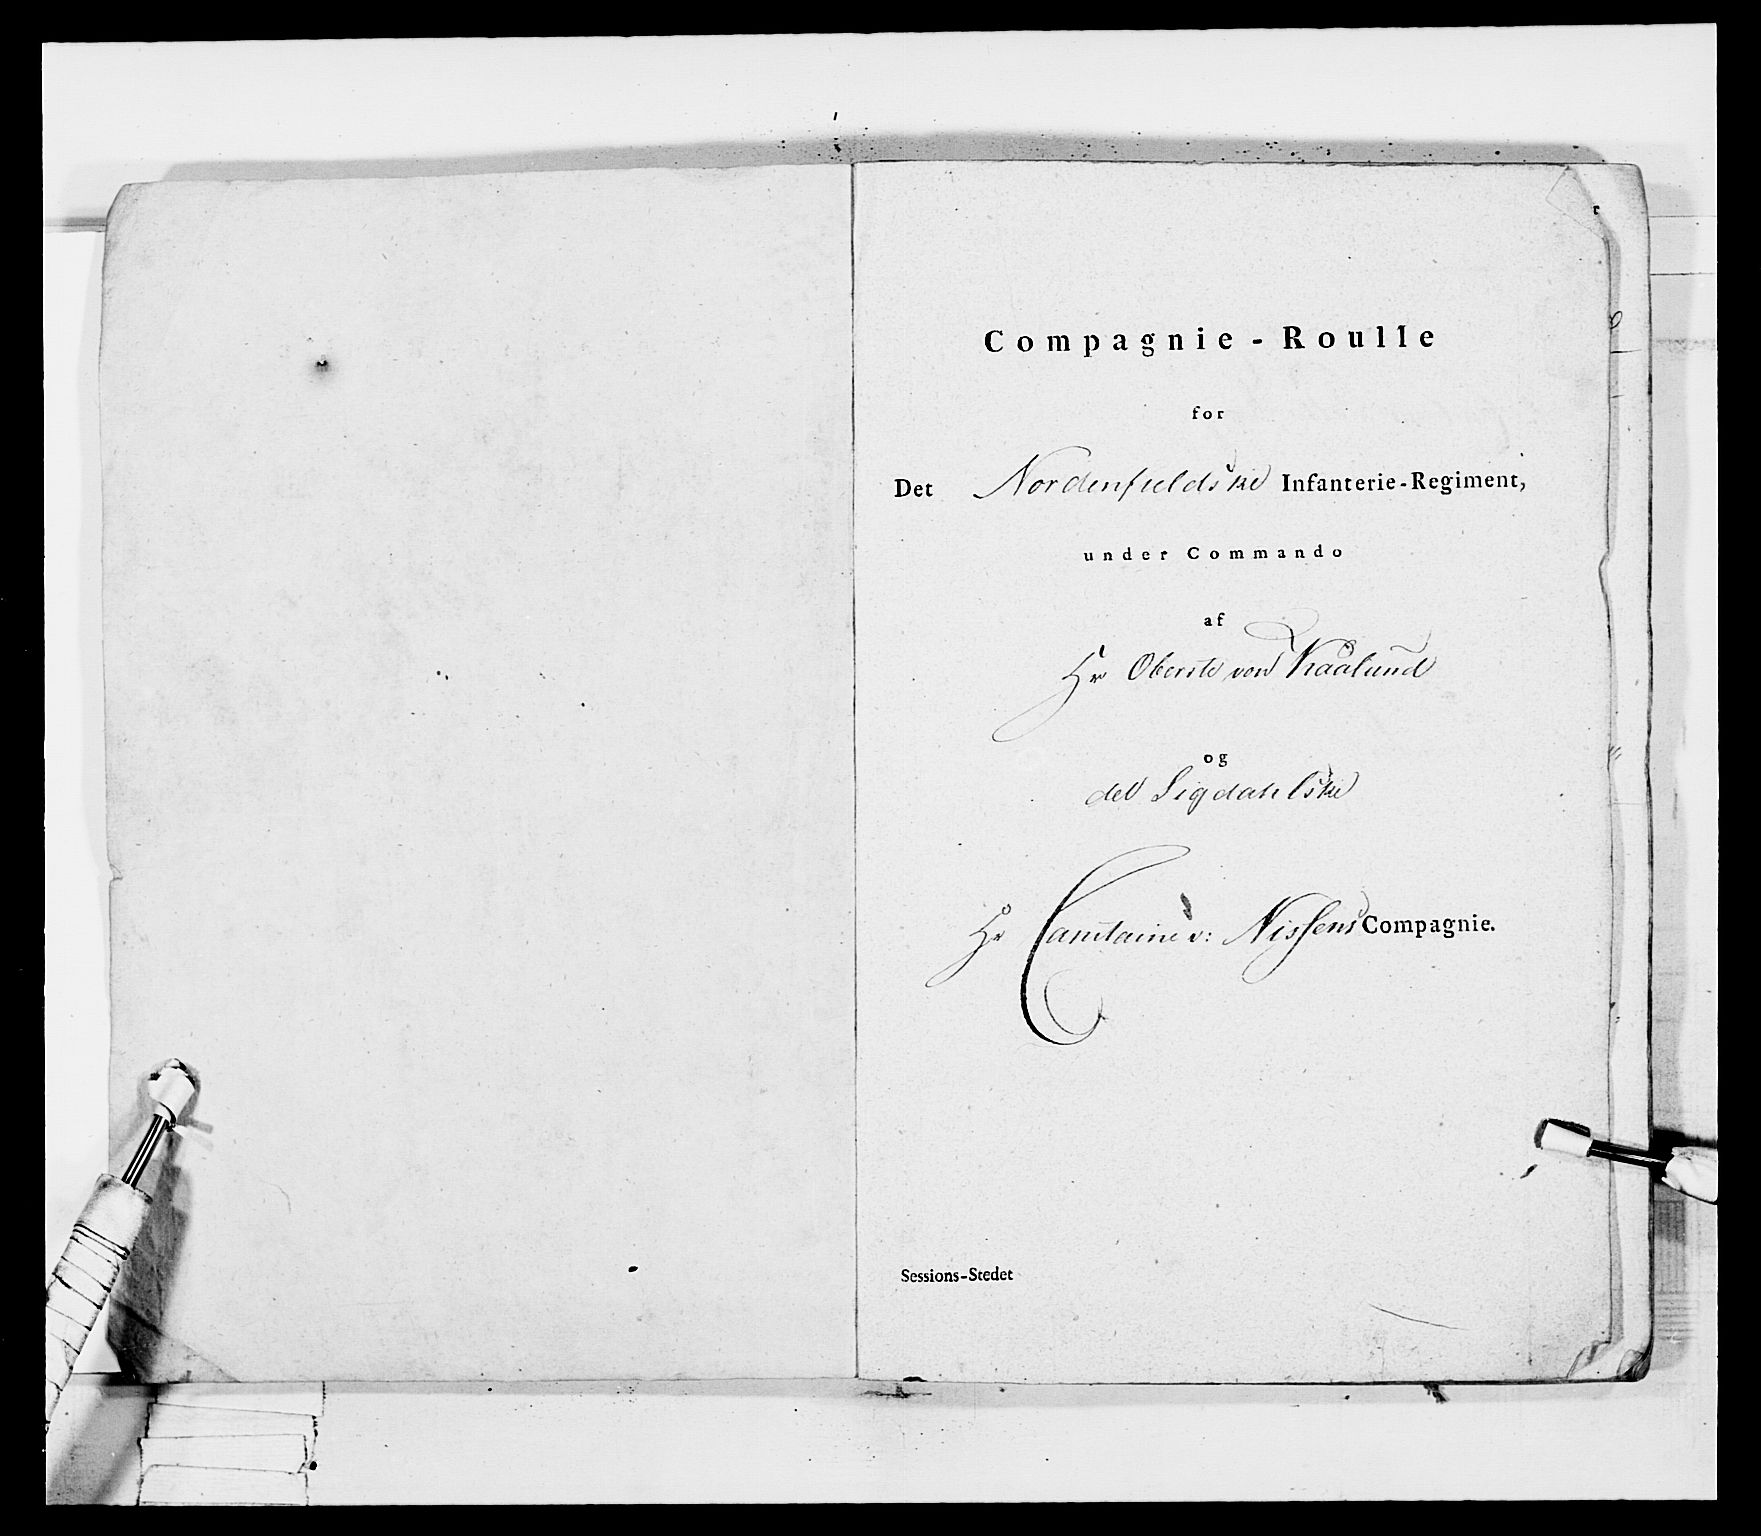 Compagnie-Roulle
for
Det Nordenfieldske Infanterie-Regiment,
under Commando
af
Hr Oberste von Kaalund
og
det Sigdahlske
Hr Capitaine v: Nissens Compagnie.
Sessions-Stedet